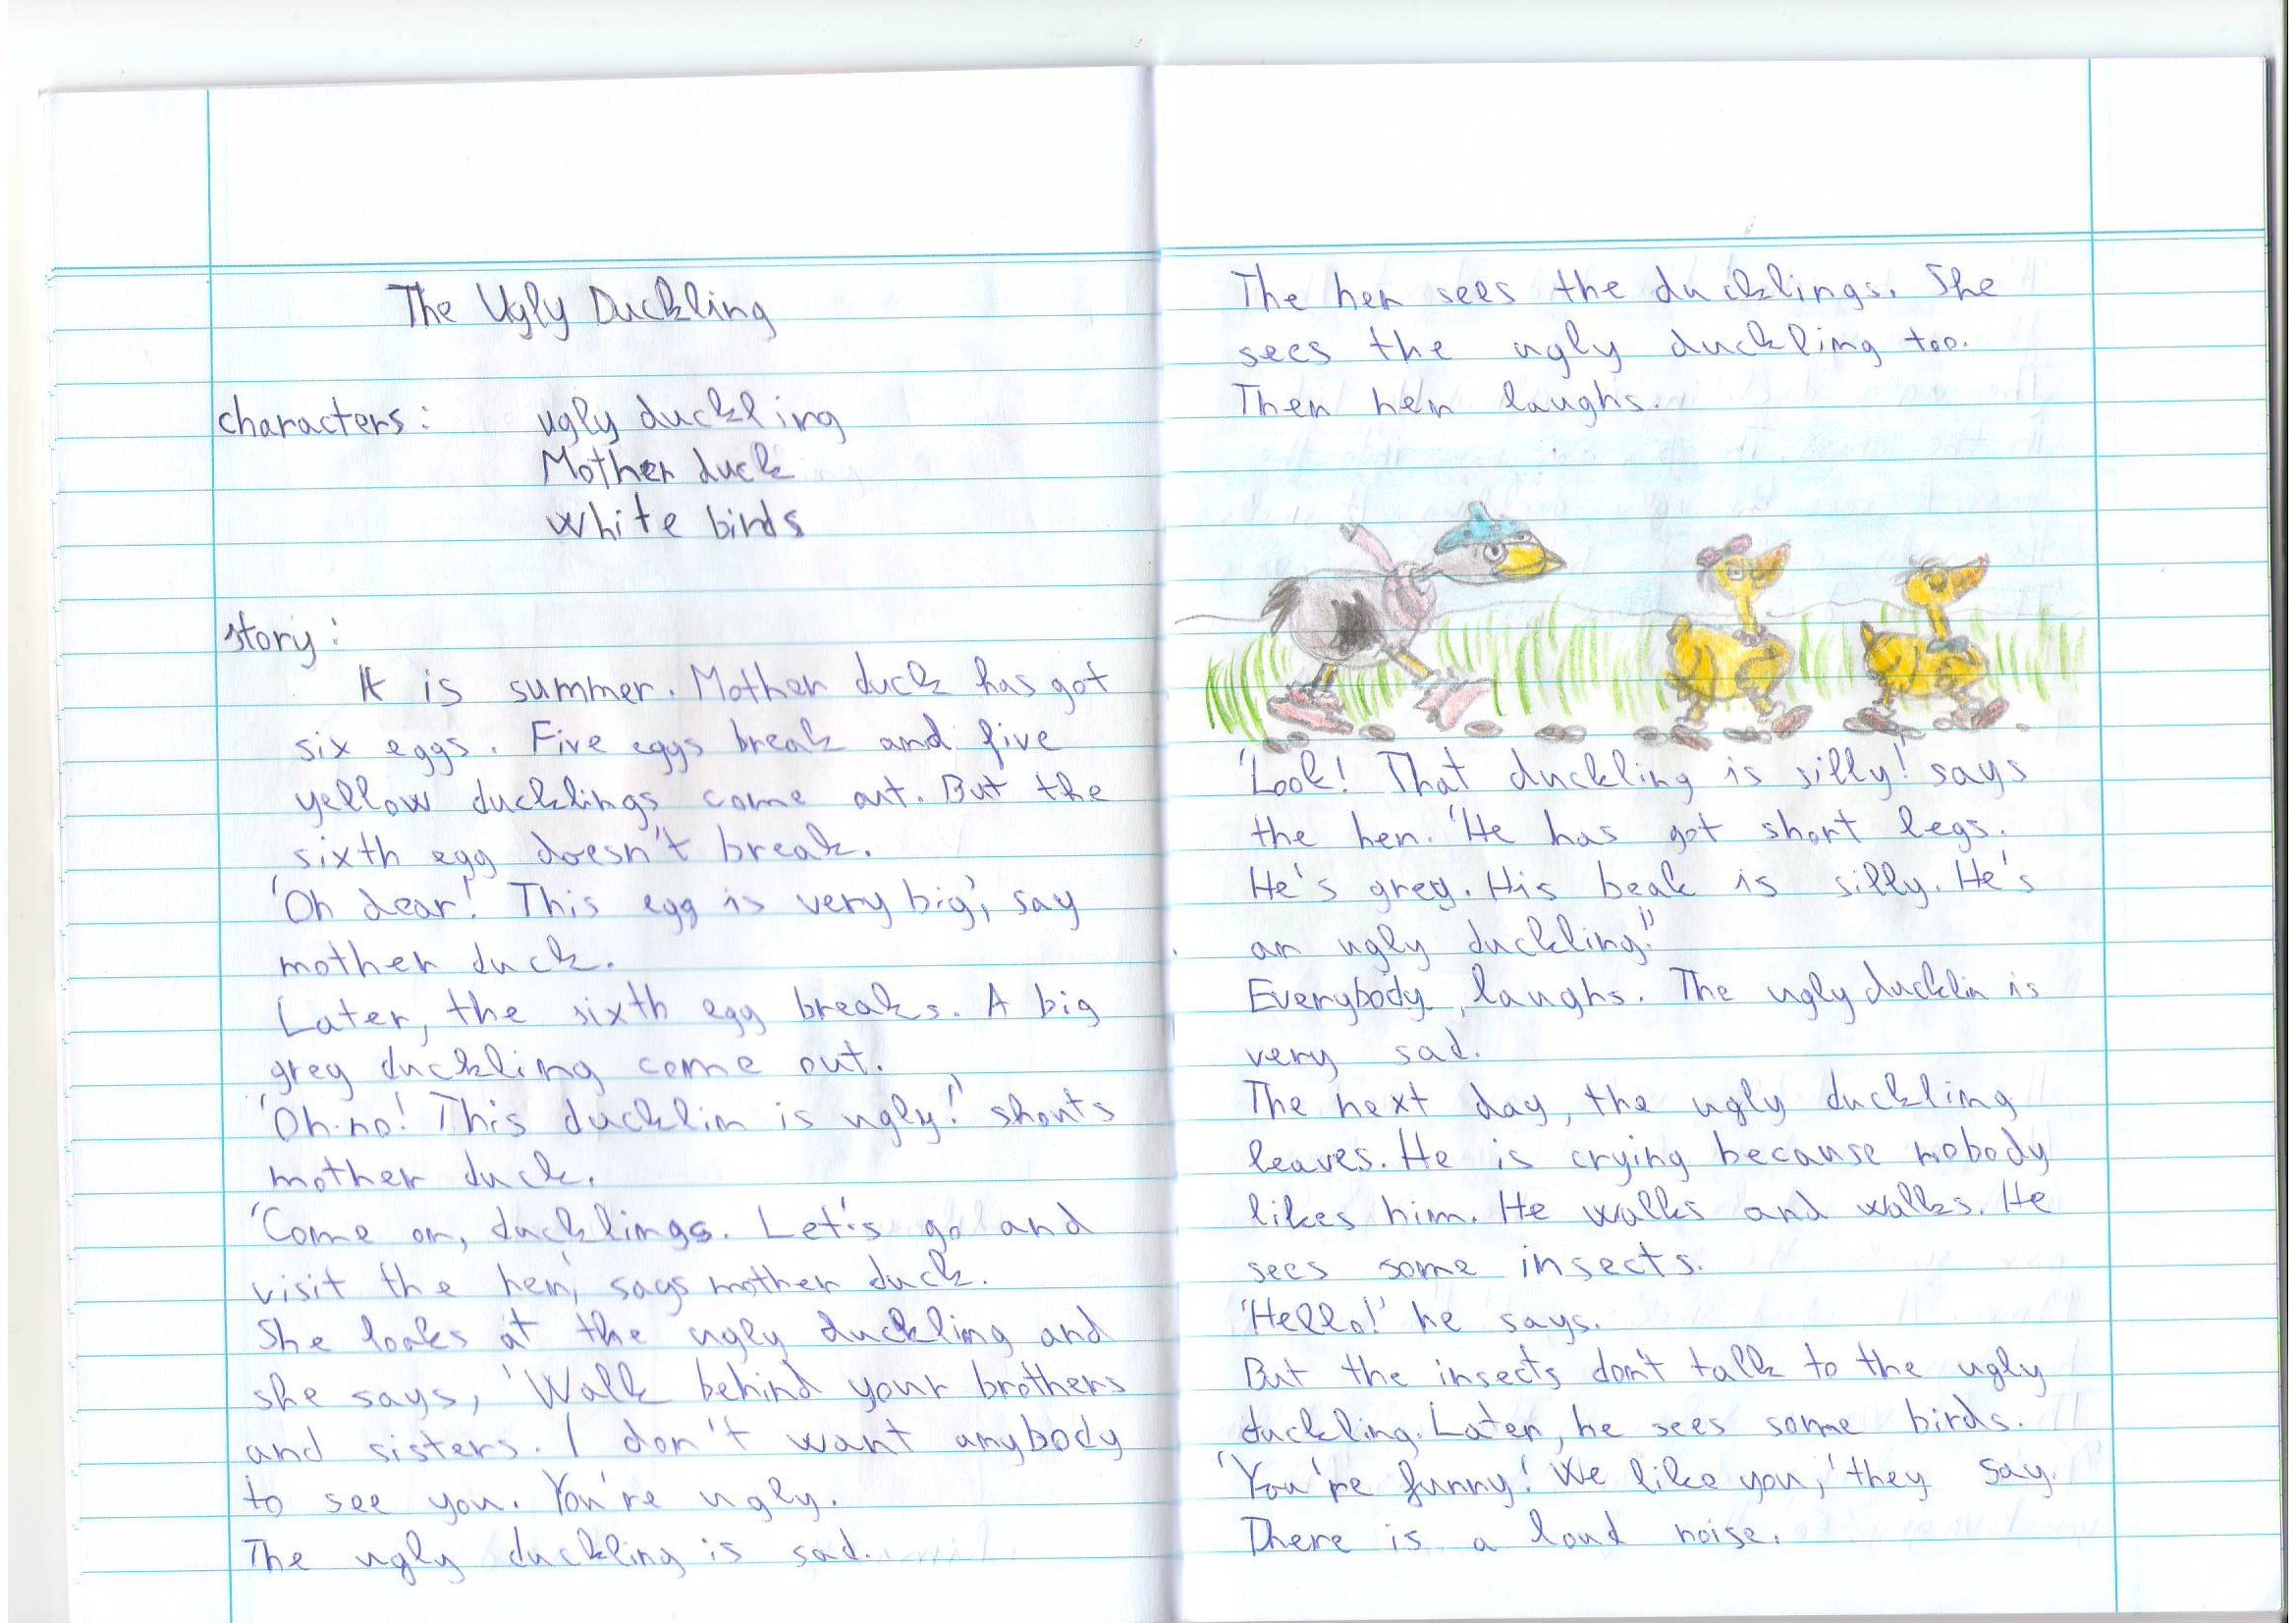 The Ugly Duckling
characters: ugly duckling
Mother duck
white birds
story:
It is summer. Mother duck has got
six eggs. Five eggs break and five
yellow ducklings come out. But the
sixth egg doesn't break.
'Oh dear! This egg is very big', say
mother duck.
Later, the sixth egg breaks. A big
grey duckling come out.
'Oh no! This ducklin is ugly!' shouts
mother duck.
'Come on, ducklings. Let's go and
visit the hen', says mother duck.
She looks at the ugly duckling and
she says, 'Walk behind your brothers
and sisters. I don't want anybody
to see you. You're ugly.
The ugly duckling is sad.
The hen sees the ducklings. She
sees the ugly duckling too.
Then hen laughs.
'Look! That duckling is silly!' says
the hen. 'He has got short legs.
He's grey. His beak is silly. He's
an ugly duckling!'
Everybody laughs. The ugly ducklin is
very sad.
The next day, the ugly duckling
leaves. He is crying because nobody
likes him. He walks and walks. He
sees some insects.
'Hello!' he says.
But the insects don't talk to the ugly
duckling. Later, he sees some birds.
'You're funny! We like you,' they say.
There is a loud noise.